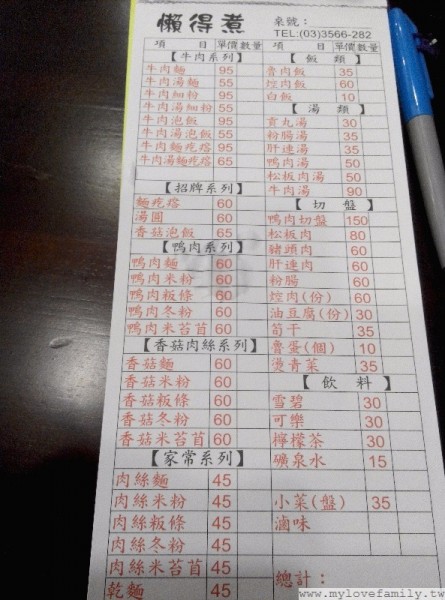 懶得煮
桌號：
TEL:(03)3566-282
項 目 單價 數量
【牛肉系列】
牛肉麵 95
牛肉湯麵 55
牛肉細粉 95
牛肉湯細粉 55
牛肉泡飯 95
牛肉湯泡飯 55
牛肉麵疙瘩 95
牛肉湯麵疙瘩 65
【招牌系列】
麵疙瘩 60
湯圓 60
香菇泡飯 65
【鴨肉系列】
鴨肉麵 60
鴨肉米粉 60
鴨肉粄條 60
鴨肉冬粉 60
鴨肉米苔苜 60
【香菇肉絲系列】
香菇麵 60
香菇米粉 60
香菇粄條 60
香菇冬粉 60
香菇米苔苜 60
【家常系列】
肉絲麵 45
肉絲米粉 45
肉絲粄條 45
肉絲冬粉 45
肉絲米苔苜 45
乾麵 45
項 目 單價 數量
【飯類】
魯肉飯 35
焢肉飯 60
白飯 10
【湯類】
貢丸湯 30
粉腸湯 35
肝連湯 35
鴨肉湯 50
松板肉湯 50
牛肉湯 90
【切盤】
鴨肉切盤 150
松板肉 80
豬頭肉 60
肝連肉 60
粉腸 60
焢肉(份) 60
油豆腐(份) 30
荀干 35
魯蛋(個) 10
燙青菜 35
【飲料】
雪碧 30
可樂 30
檸檬茶 30
礦泉水 15
小菜(盤) 35
滷味
總計：
www.mylovefamily.tw